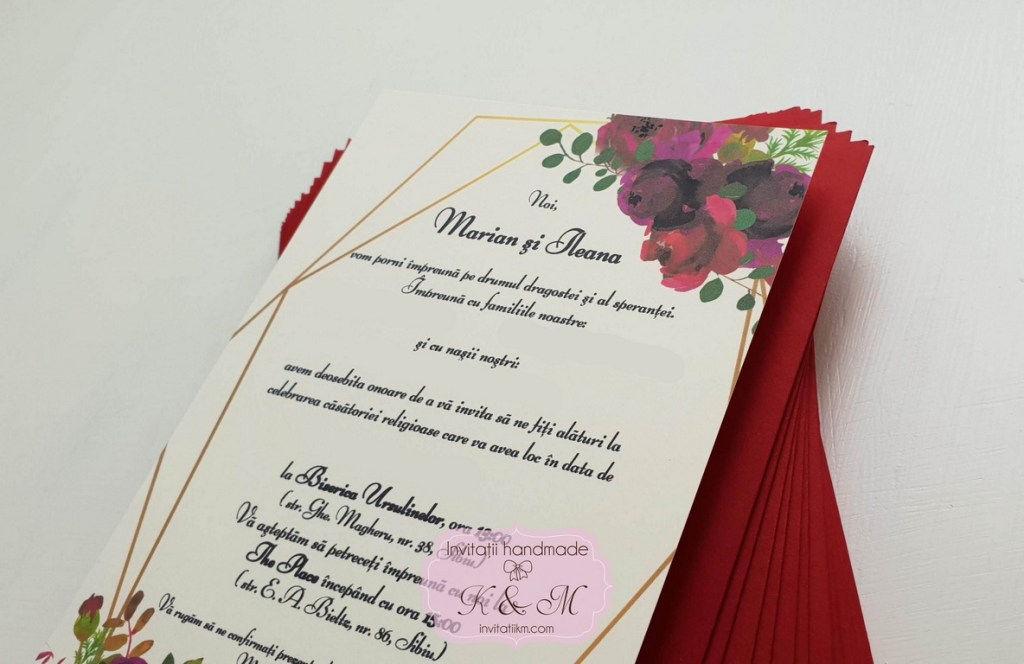 Noi,
Marian şi Ileana
vom porni împreună pe drumul dragostei şi al speranţei.
Împreună cu familiile noastre:
şi cu naşii noştri:
avem deosebita onoare de a vă invita să ne fiţi alături la
celebrarea căsătoriei religioase care va avea loc în data de
la Biserica Ursulinelor, ora
(str. Ghe. Magheru, nr. 38, Sibiu.)
Vă aşteptăm să petreceţi împreună cu noi la
The Place începând cu ora
(str. E. A. Bieltz, nr. 86, Sibiu.)
Vă rugăm să ne confirmaţi
Invitații handmade
K & M
invitatiikm.com